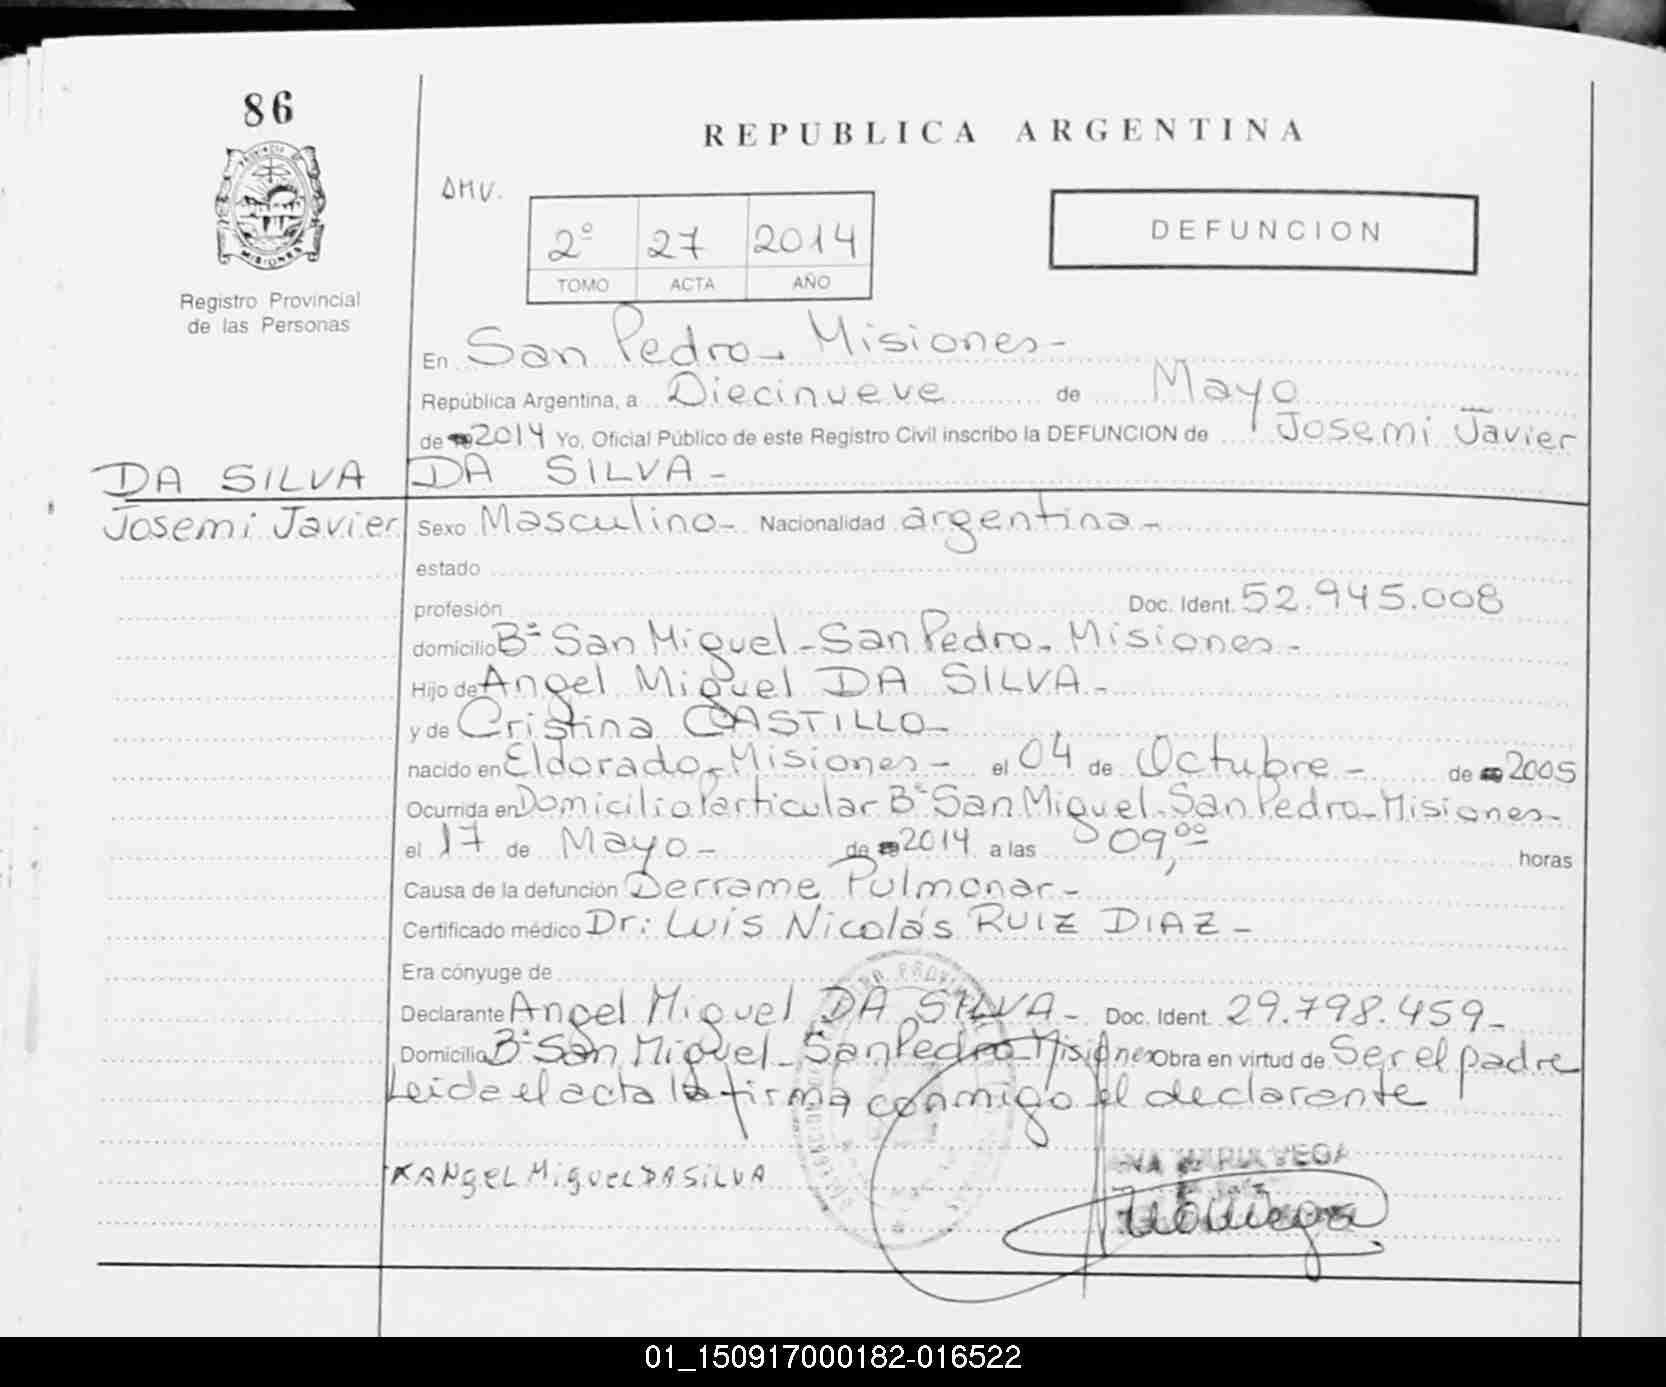 86
PROVINCIA D
MISIONES
Registro Provincial
de las Personas
REPUBLICA ARGENTINA
AMV.
2º 27 2014
TOMO ACTA AÑO
DEFUNCION
En San Pedro - Misiones -
República Argentina, a Diecinueve de Mayo
de 2014 Yo, Oficial Público de este Registro Civil inscribo la DEFUNCION de Josemi Javier
DA SILVA -
DA SILVA
Josemi Javier
Sexo Masculino - Nacionalidad argentina -
estado
profesión Doc. Ident. 52.945.008
domicilio Bº San Miguel - San Pedro - Misiones -
Hijo de Angel Miguel DA SILVA -
y de Cristina CASTILLO -
nacido en Eldorado - Misiones - el 04 de Octubre - de 2005
Ocurrida en Domicilio Particular Bº San Miguel - San Pedro - Misiones -
el 17 de Mayo - de 2014 a las 09,00 horas
Causa de la defunción Derrame Pulmonar -
Certificado médico Dr: Luis Nicolás RUIZ DIAZ -
Era cónyuge de
Declarante Angel Miguel DA SILVA - Doc. Ident. 29.798.459 -
Domicilio Bº San Miguel - San Pedro - Misiones Obra en virtud de Ser el padre
Leida el acta la firma conmigo el declarante
x ANgEL MiguEL DA SiLVA
VEGA
01_150917000182-016522